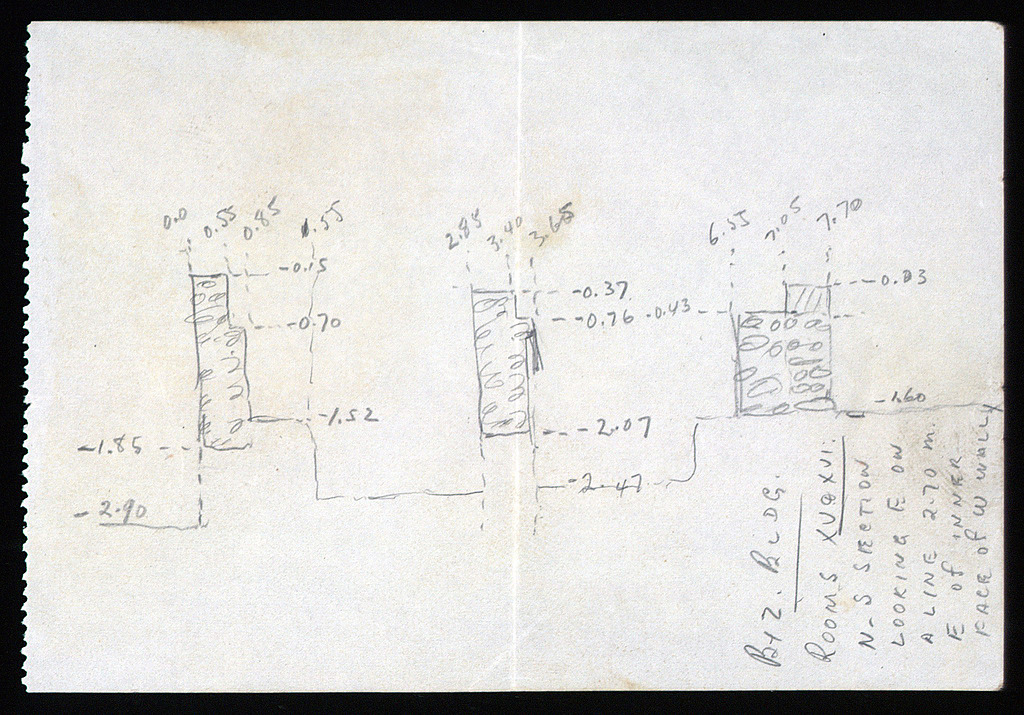 0.0 0.55 0.85 1.55 2.85 3.40 3.65 6.55 7.05 7.70
-0.15
-0.70
-1.52
-1.85
-2.90
-0.37
-0.76
-2.07
-2.47
-0.43
-0.03
-1.60
BYZ. BLDG.
ROOMS XV & XVI.
N-S SECTION
LOOKING E ON
A LINE 2.70 m.
E of INNER
FACE of W WALL